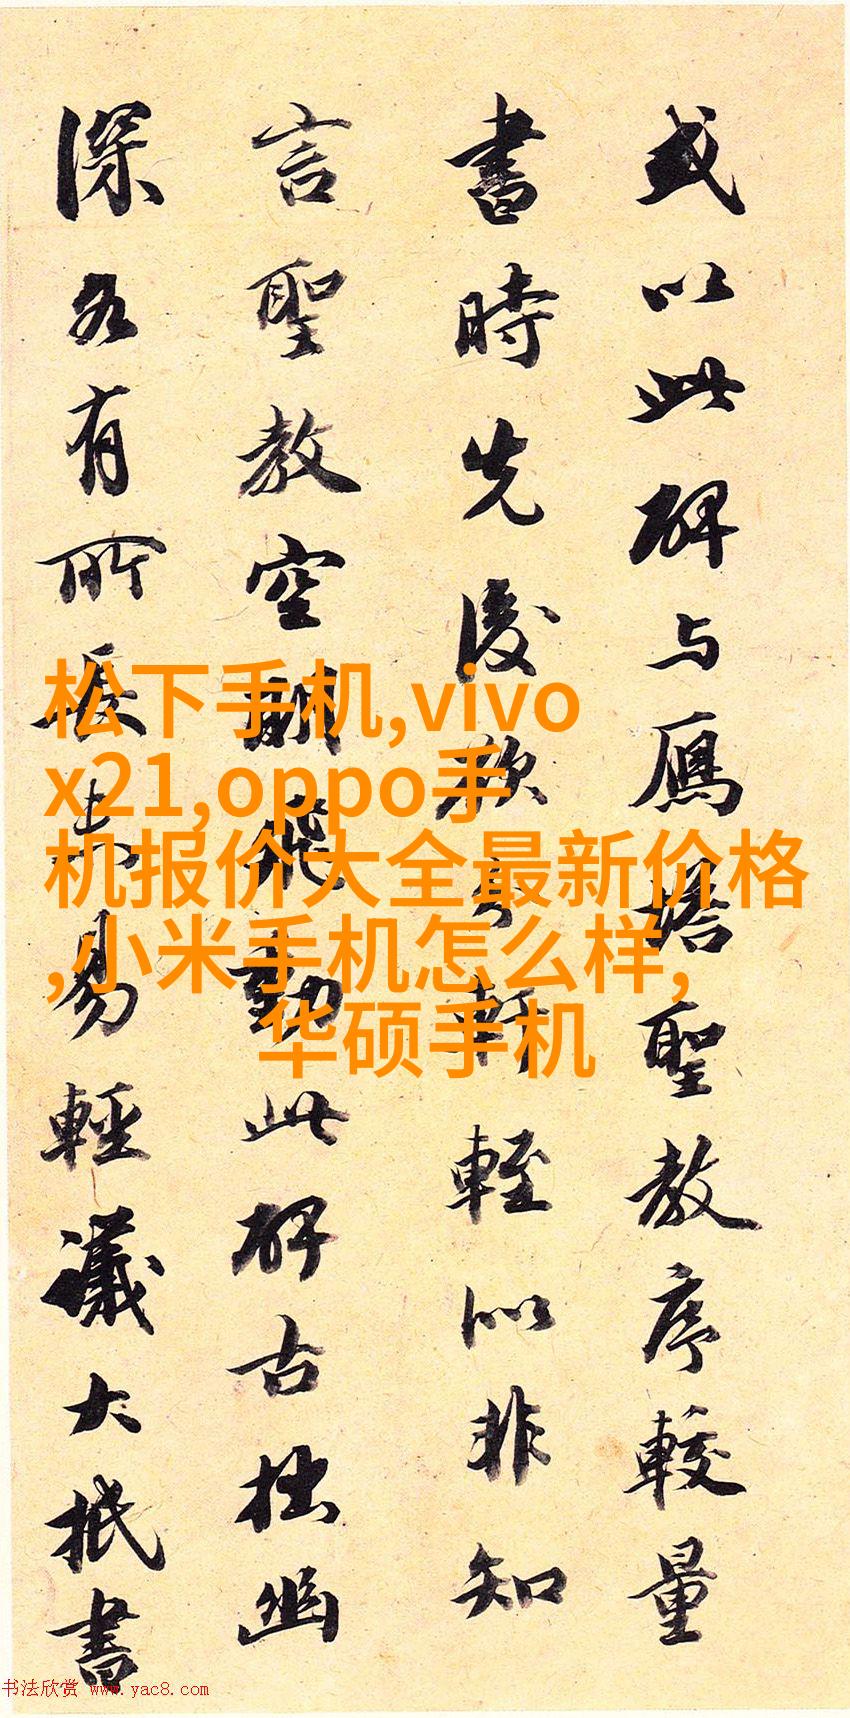 或以此碑与鴈塔聖教序較量
書時先後欲分軒輊似非知
言聖教空飛動此碑古拙幽
深各有所長未易輕議大抵書
松下手机,vivo
x21,oppo手
机报价大全最新价格
,小米手机怎么样,
华硕手机
书法欣赏 www.yac8.com